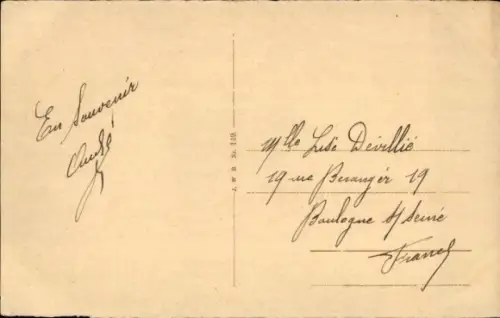 En Souvenir
André
J. W. B. No. 149.
Mlle Lise Dévillié
19 rue Béranger 19
Boulogne s/ Seine
France